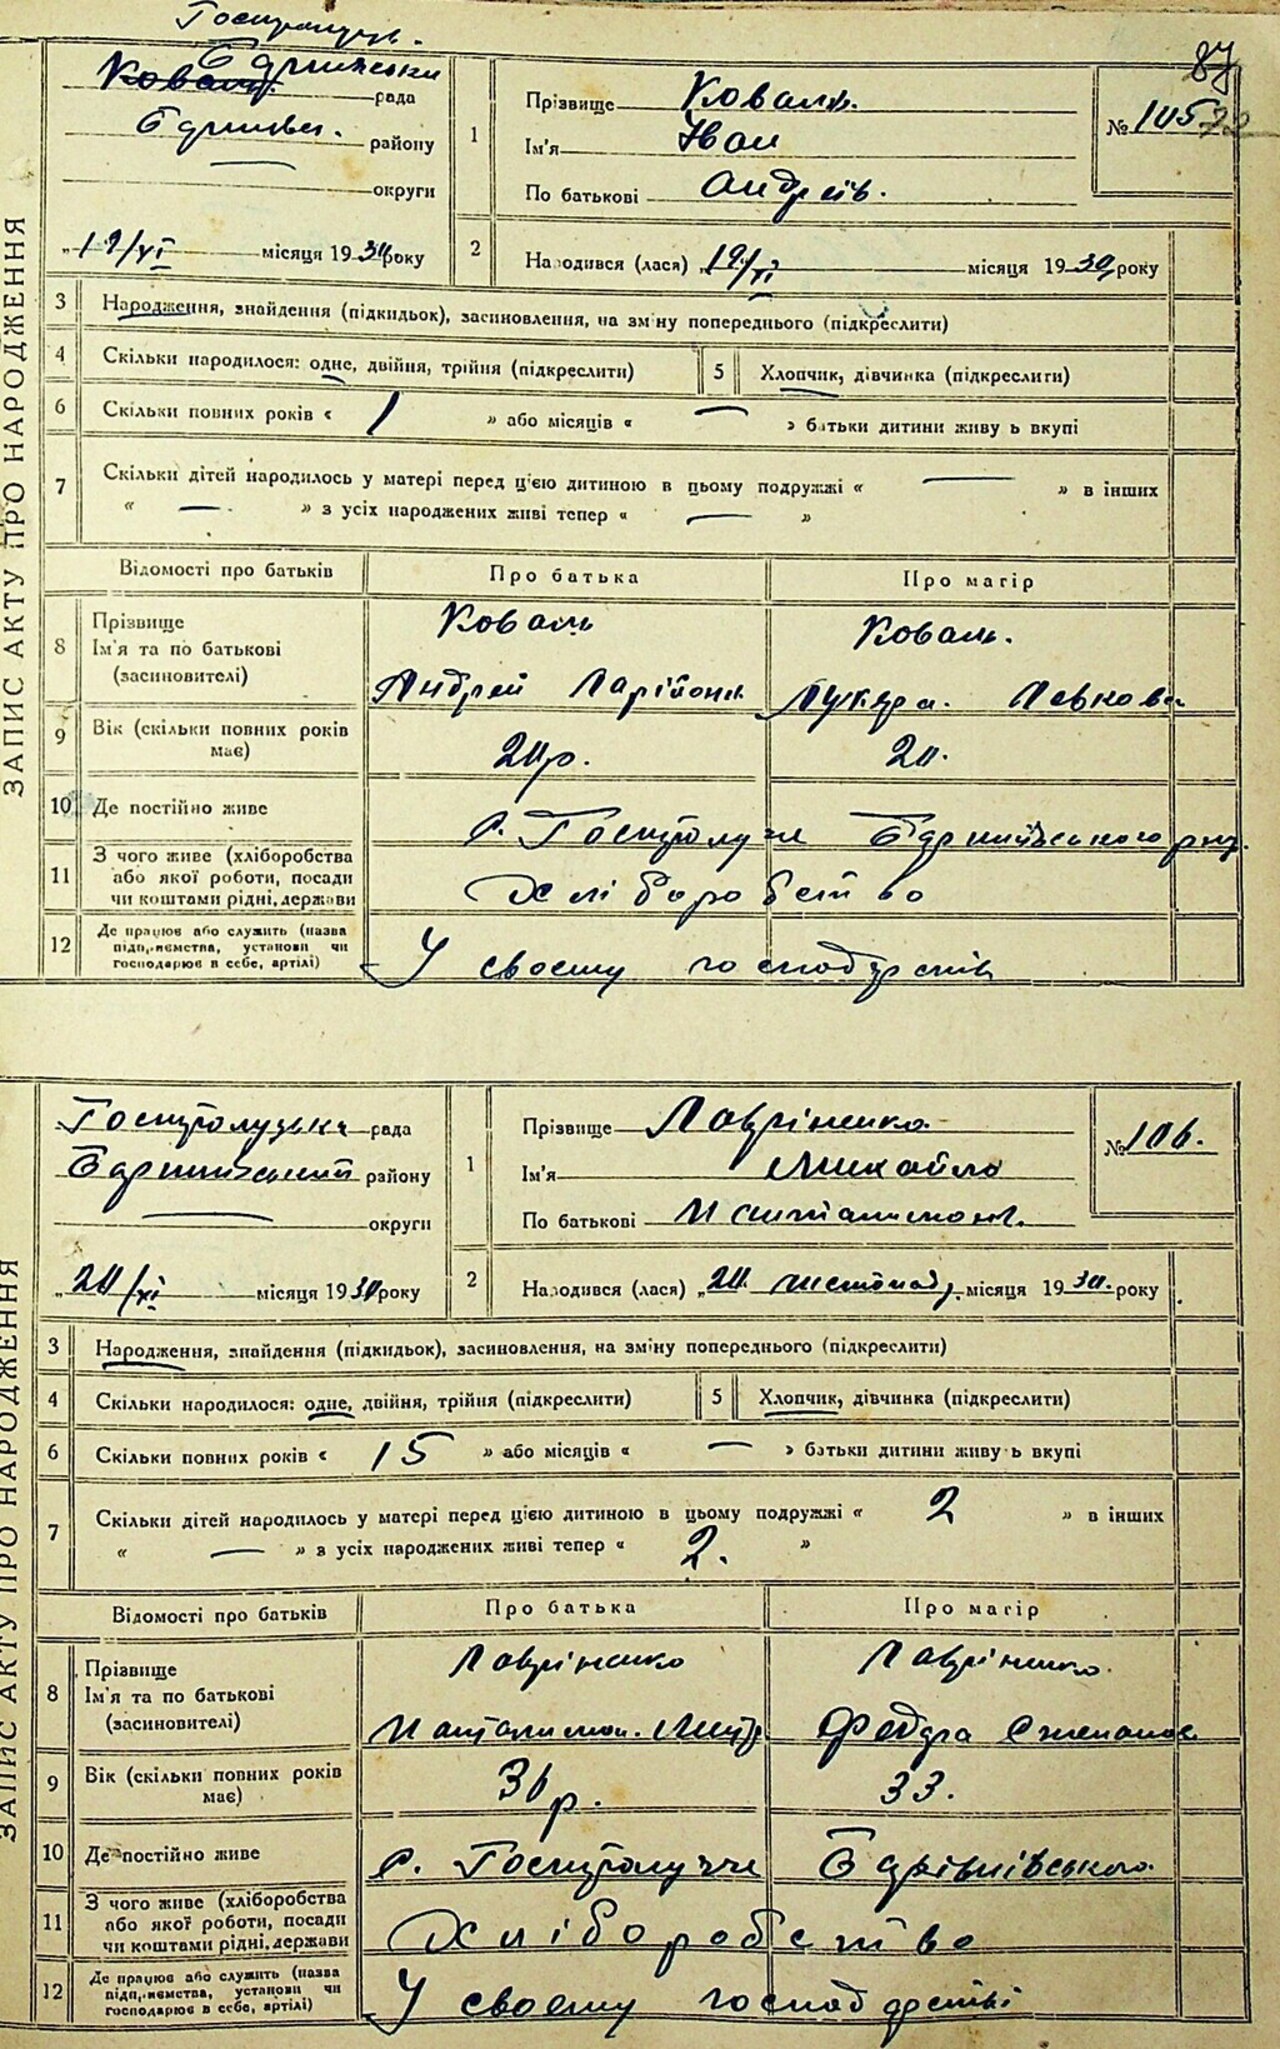 87
Ковал.
рада
району
округи
„19/XI місяця 1930 року
ЗАПИС АКТУ ПРО НАРОДЖЕННЯ
1
Прізвище Коваль.
Ім'я Иван
По батькові Андреїв.
№ 105
2
Народився (лася) „19/XI місяця 1930 року
3 Народження, знайдення (підкидьок), засиновлення, на зміну попереднього (підкреслити)
4 Скільки народилося: одне, двійня, трійня (підкреслити)
5 Хлопчик, дівчинка (підкреслити)
6 Скільки повних років « 1 » або місяців « — » батьки дитини живуть вкупі
7 Скільки дітей народилось у матері перед цією дитиною в цьому подружжі « — » в інших
« — » з усіх народжених живі тепер « — »
Відомості про батьків Про батька Про матір
8 Прізвище
Ім'я та по батькові
(засиновителі)
Коваль Коваль.
Андрей Ларійон. Лукера. Левкова
9 Вік (скільки повних років має)
20 р. 20.
10 Де постійно живе
с.
11 З чого живе (хліборобства
або якої роботи, посади
чи коштами рідні, держави
Хліборобство
12 Де працює або служить (назва
підприємства, установи чи
господарює в себе, артілі)
У своєму господарстві
рада
району
округи
„20/XI місяця 1930 року
ЗАПИС АКТУ ПРО НАРОДЖЕННЯ
1
Прізвище Лавріненко
Ім'я Михайло
По батькові
№ 106.
2
Народився (лася) „20 листопад. місяця 1930. року
3 Народження, знайдення (підкидьок), засиновлення, на зміну попереднього (підкреслити)
4 Скільки народилося: одне, двійня, трійня (підкреслити)
5 Хлопчик, дівчинка (підкреслити)
6 Скільки повних років « 15 » або місяців « — » батьки дитини живуть вкупі
7 Скільки дітей народилось у матері перед цією дитиною в цьому подружжі « 2 » в інших
« — » з усіх народжених живі тепер « 2. »
Відомості про батьків Про батька Про матір
8 Прізвище
Ім'я та по батькові
(засиновителі)
Лавріненко Лавріненко.
Пантелимон. Дмитр. Федора Степанов
9 Вік (скільки повних років має)
36 р. 33.
10 Де постійно живе
с.
11 З чого живе (хліборобства
або якої роботи, посади
чи коштами рідні, держави
Хліборобство
12 Де працює або служить (назва
підприємства, установи чи
господарює в себе, артілі)
У своєму господарстві